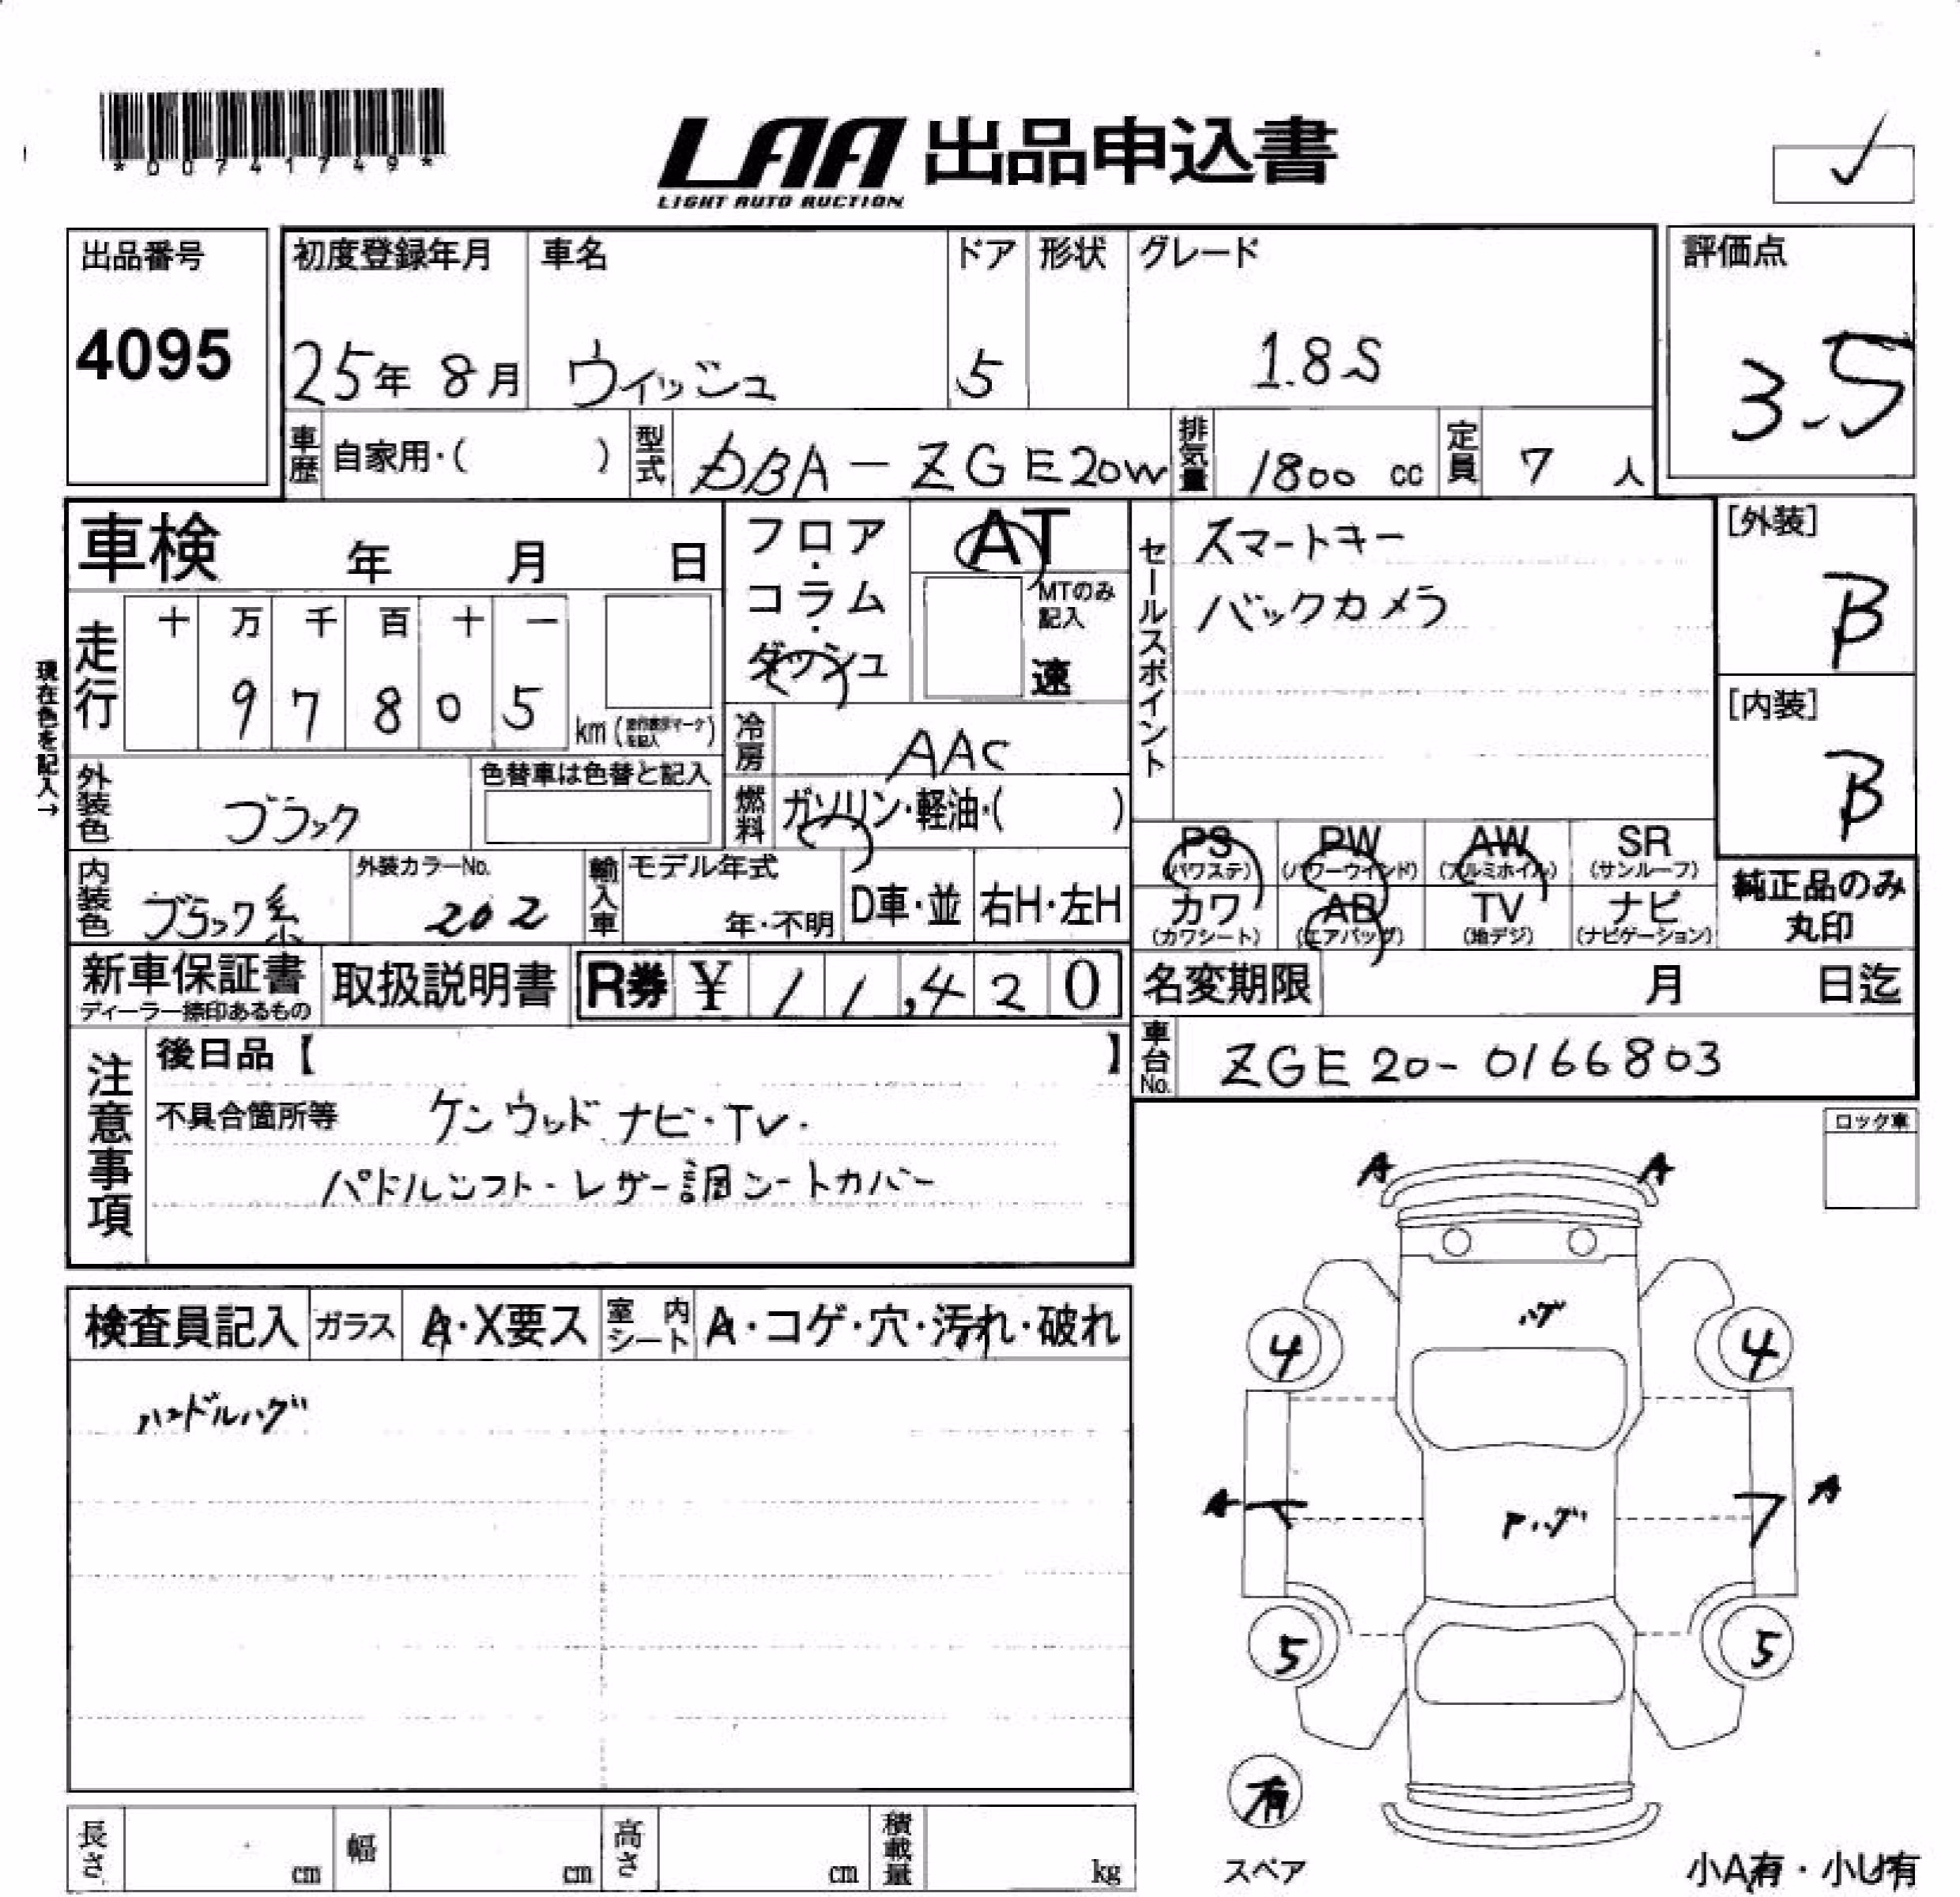 *00741749*
LAA 出品申込書
LIGHT AUTO AUCTION
出品番号
4095
初度登録年月 車名 ドア 形状 グレード
25年 8月 ウィッシュ 5 1.8S
評価点
3.5
車歴 自家用・( ) 型式 DBA-ZGE20W 排気量 1800 cc 定員 7 人
車検 年 月 日
フロア・コラム・ダッシュ
AT
MTのみ記入
速
セールスポイント
スマートキー
バックカメラ
[外装]
B
[内装]
B
現在色を記入→
走行
十 万 千 百 十 一
9 7 8 0 5 km
冷房 AAC
外装色 ブラック
色替車は色替と記入
燃料 ガソリン・軽油・( )
内装色 ブラック系
外装カラーNo.
202
輸入車 モデル年式
年・不明 D車・並 右H・左H
PS PW AW SR
(パワステ) (パワーウインド) (アルミホイル) (サンルーフ)
カワ AB TV ナビ
(カワシート) (エアバッグ) (地デジ) (ナビゲーション)
純正品のみ
丸印
新車保証書
ディーラー捺印あるもの
取扱説明書
R券 ¥ 11,420
名変期限 月 日迄
車台No. ZGE20-0166803
注意事項
後日品【 】
不具合箇所等 ケンウッド ナビ・TV.
パドルシフト・レザー調シートカバー
ロック車
検査員記入 ガラス A・X要ス 室内シート A・コゲ・穴・汚れ・破れ
ハンドルハゲ
A A
ハゲ
4 4
A A
ハゲ
5 5
有
スペア
小A有・小U有
長さ cm 幅 cm 高さ cm 積載量 kg